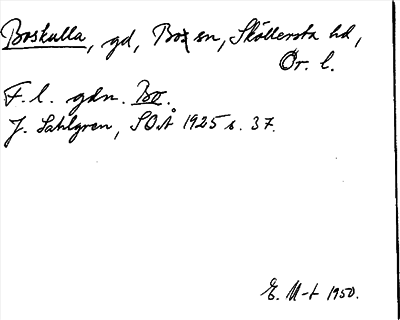 Boskulla, gd, Bo sn, Sköllersta hd,
Ör. l.
F. l. gdn. Bo.
J. Sahlgren, SOÅ 1925 s. 37.
E. M-t 1950.